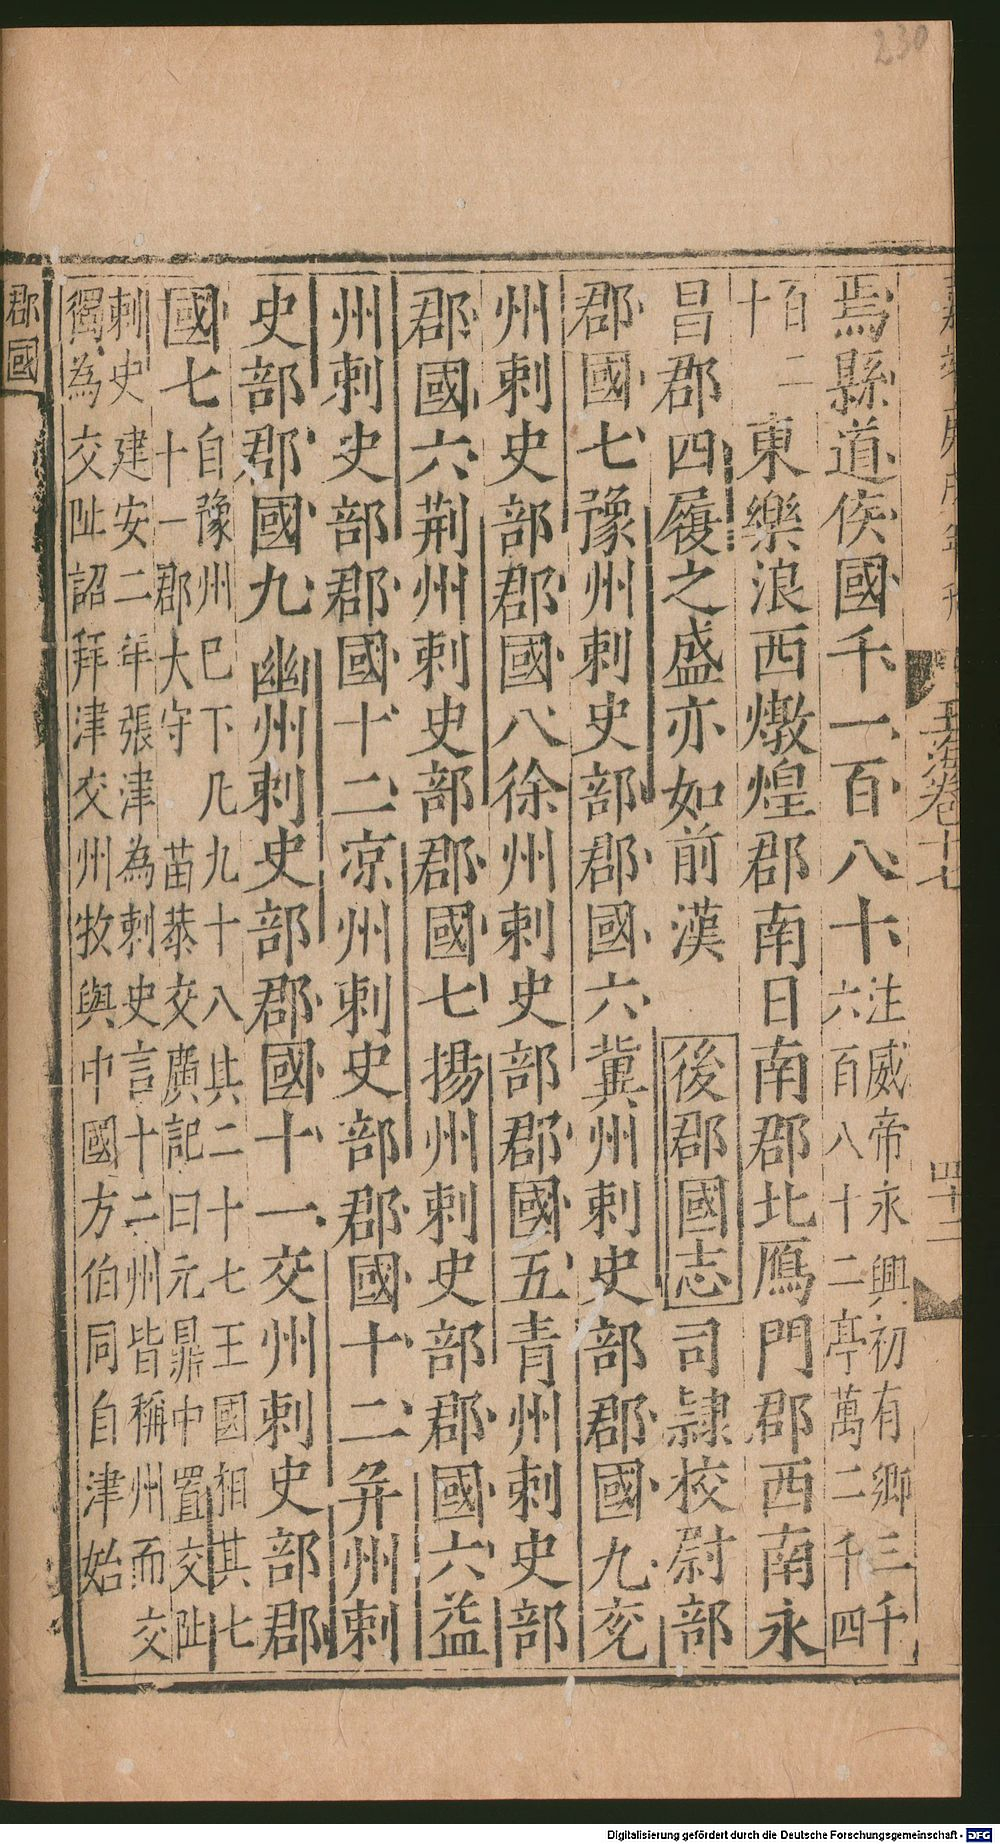 230
玉海卷十七
四十二
焉縣道侯國千一百八十注威帝永興初有鄉三千六百八十二亭萬二千四
百二十東樂浪西燉煌郡南日南郡北鴈門郡西南永
昌郡四履之盛亦如前漢 後郡國志 司隷校尉部
郡國七豫州刺史部郡國六冀州刺史部郡國九兖
州刺史部郡國八徐州刺史部郡國五青州刺史部
郡國六荆州刺史部郡國七揚州刺史部郡國六益
州刺史部郡國十二凉州刺史部郡國十二并州刺
史部郡國九幽州刺史部郡國十一交州刺史部郡
國七自豫州巳下凡九十八其二十七王國相其七十一郡大守 苗恭交廣記曰元鼎中置交阯
刺史建安二年張津為刺史言十二州皆稱州而交
獨為交阯詔拜津交州牧與中國方伯同自津始
郡國
Digitalisierung gefördert durch die Deutsche Forschungsgemeinschaft - DFG